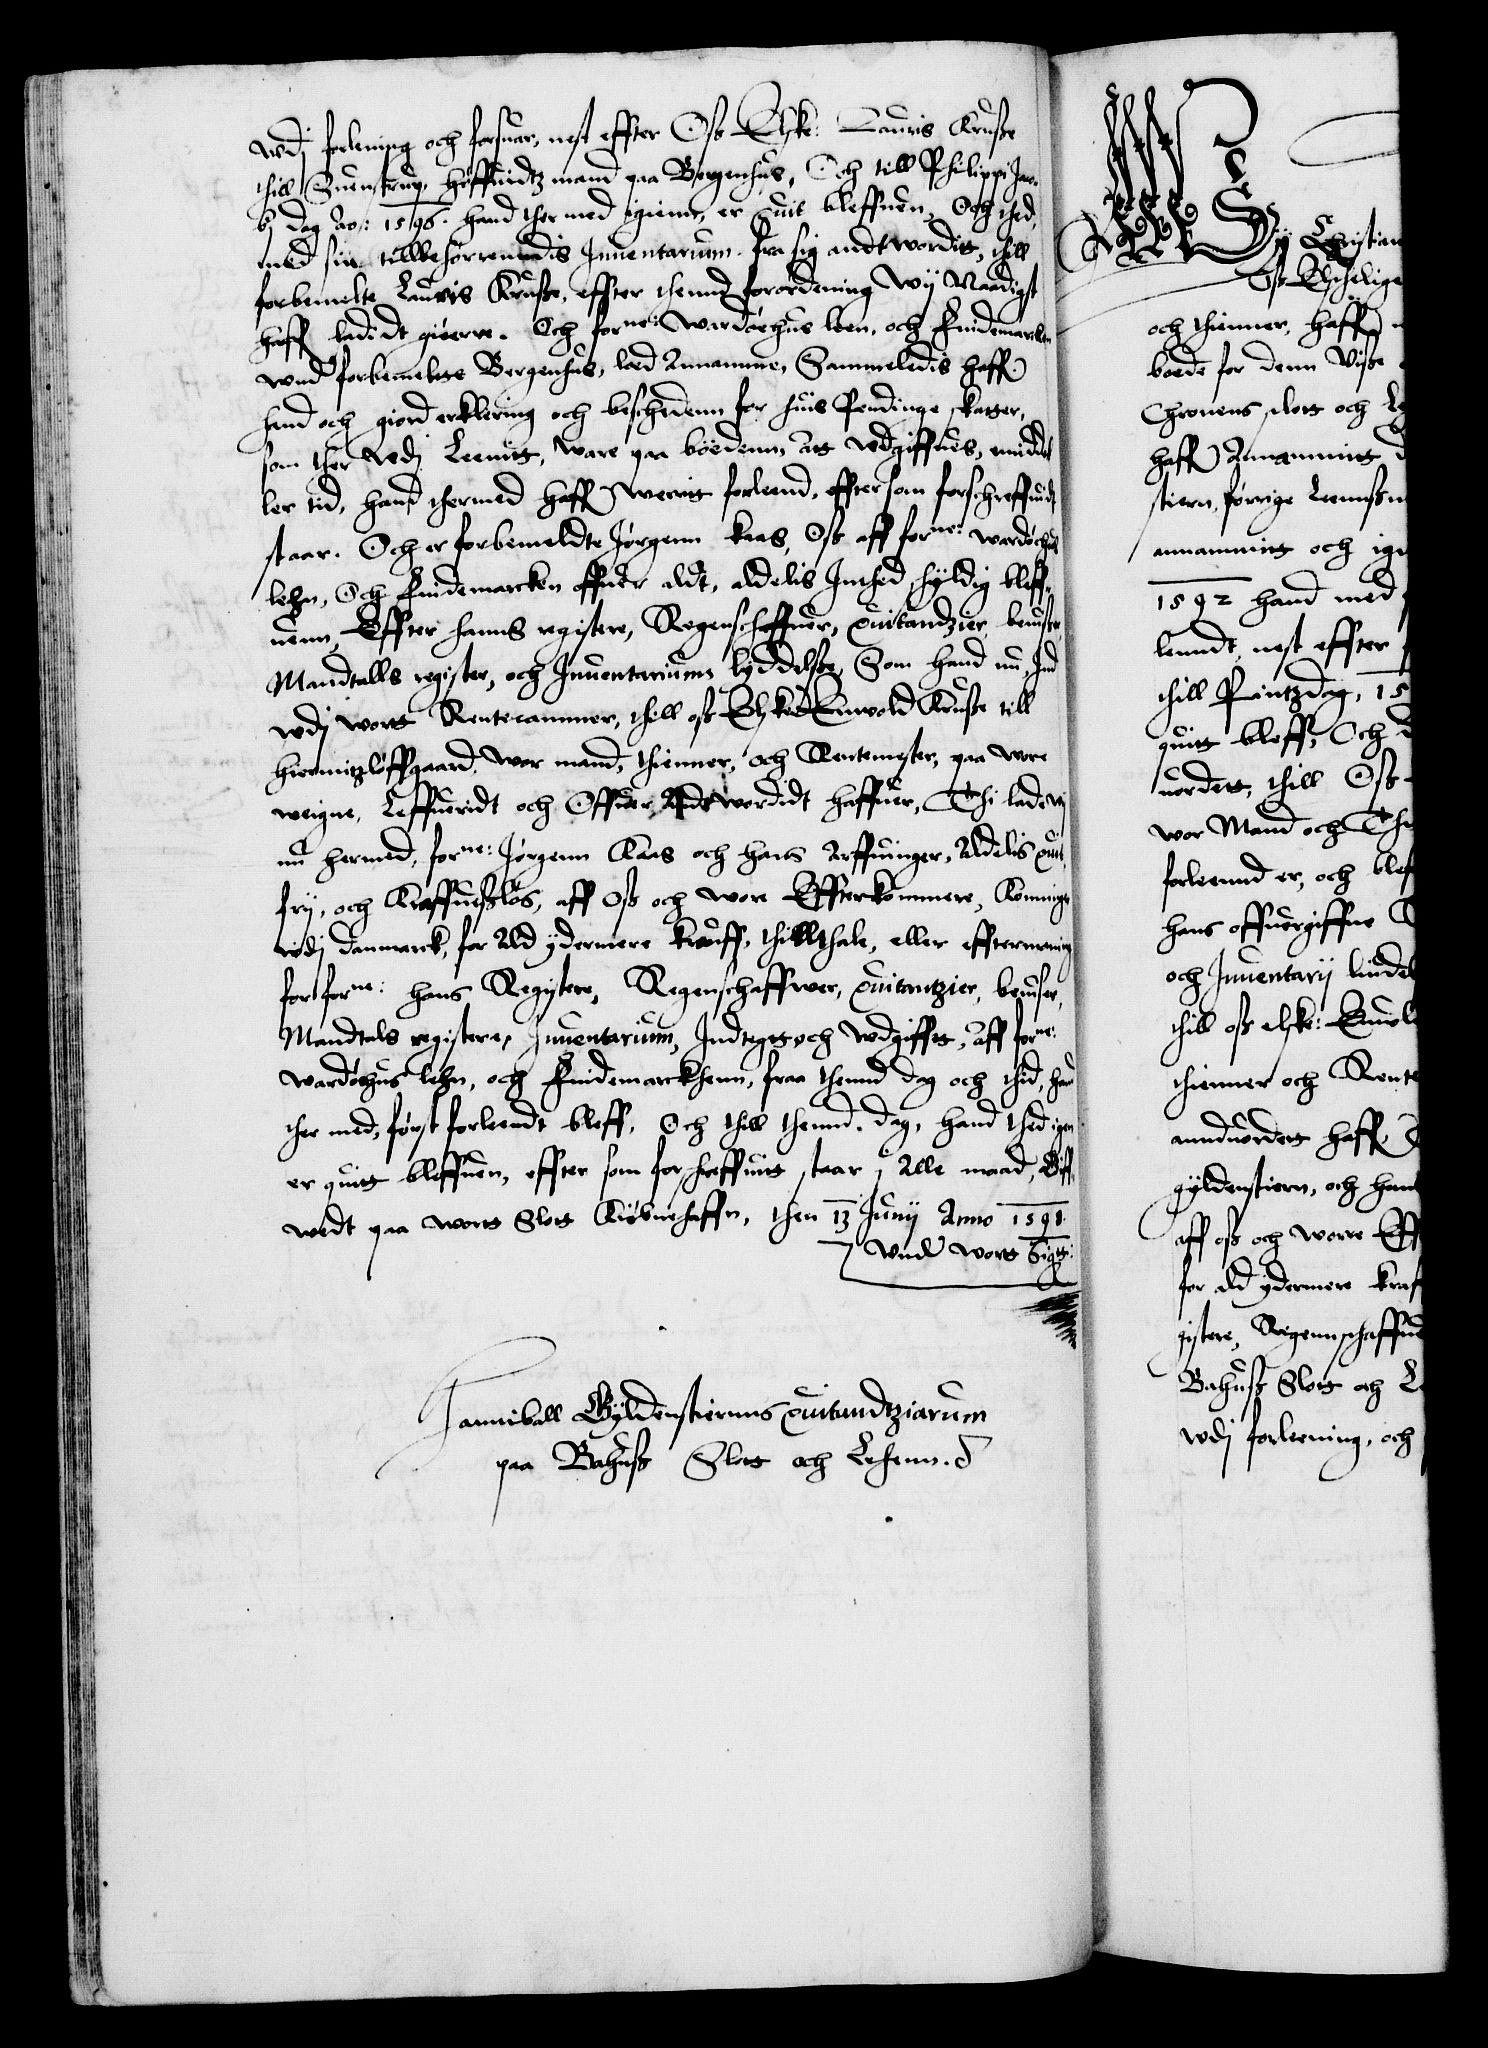 wdj forlening och forsuar, nest effter Osß Elske: Lauris Krusße
thill Suenstrup, høffuidtz mand paa Bergenhus, Och till Philippi Jaco-
bj dag Ao: 1596. hand ther med igienn, er quit bleffuen, Och thed
med siin tillbehørrendis Inuentarium fra sig andtwordit, thill
forbemelte Lauris Krusße, effter thennd forordening Wij Naadigst
haff ladidt giøerre. Och forne: Wardøehus leen, och Findemarcken
wnd forbemelte Bergenhus, lod Annamme, Sammeledis haff
hand och giord erklering och beschedenn for huis Pendinge skatter,
som ther wdj Leenitt, ware paa bødenn att wdgiffues, middel
ler tid, hand thermed haff werrit forleend, effter som forschreffuidt
staar. Och er forbemeldte Jørgenn kaas, Osß aff forne: wardøehus
lehn, Och Findemarcken offuer aldt, aldelis Inthed skyldig bleff-
uenn, Effter hanns registere, Regenschaffuer, quitandzier, beuiser,
Mandtalls register, och Inuentariums lyddelsße, Som hand nu, Ind
wdj wortt Rentecammer, thill osß Elsked Enwold Krusße till
hiermitzløffgaard, wor mand, thienner, och Rentemester, paa wore
weigne, Leffueridt och Offuer Andtwordidt haffuer, Thi lade wj
nu hermed, forne: Jørgenn Kaas och hans Arffuinger, Aldelis quit,
frij, och Kraffuesßløs, aff Osß och wore Effterkommere, Konninger
wdj Danmarck, for Ald ydermere krauff, thillthale, eller effterm​aning
for forne: hans Registere, Regenschaffwer, quitantzier, beuiser,
Mandtals registere, Inuentarium, Indtegt och wdgifft, aff forne:
wardøehus lehn, och Findemarckhenn, fraa thennd dag och thid, hand
ther med, først forleendt bleff, Och thill thennd dag, hand thed igen
er quitt bleffuen, effter som forschreffuitt staar j Alle maad, Giff-
wedt paa wortt Slott Kiøbnehaffn, then 13 Junij Anno 1598.
Vnder wortt Sigtt:
Hanniball Gyldenstierns quitandtziarum
paa Bahusß Slott och Lehenn.
Wij Christian
Osß Elschelige
och thienner, haff
boede for denn Visße
Chronens slott och Le
haff Annammitt
stiern, førrige Leensßm
annammitt och ige
1592 hand med
lenndt, nest effter
thill Pintzdag, 15
quitt bleff, Och
uordett, thill Osß
wor Mand och Thi
forleennd er, och blef
hans offuergiffne
och Inuentarij liudel
thill osß elske: Enwol
thienner och Rente
anduordett haff
gyldenstiern, och han
aff osß och worre Eff
for ald ydermere kraf
gistere, Regennschaffue
Bahusß Slott och Le
wdj forleening, och